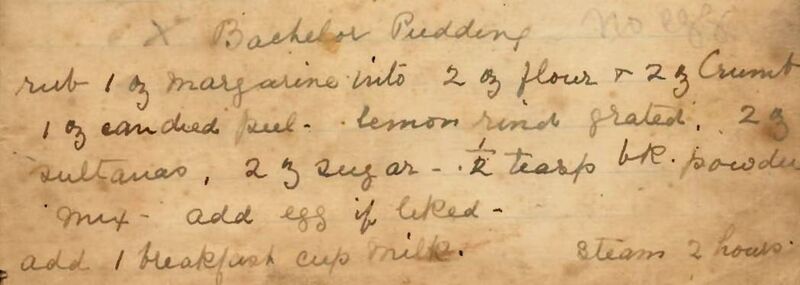 x Bachelor Pudding No egg
rub 1 oz margarine into 2 oz flour + 2 oz Crumb
1 oz candied peel - lemon rind grated, 2 oz
sultanas, 2 oz sugar - 1/2 teasp bk. powder
mix - add egg if liked -
add 1 breakfast cup milk. Steam 2 hours.